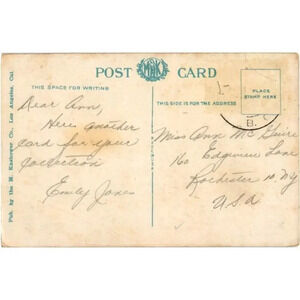 POST CARD
THIS SPACE FOR WRITING
THIS SIDE IS FOR THE ADDRESS
PLACE
STAMP HERE
Pub. by the M. Kashower Co., Los Angeles, Cal.
B.
Dear Ann,
Heres another
card for your
collection
Emily Jones
Miss Ann McGuire
160 Edgemere Lane
Rochester 10, NY
USA